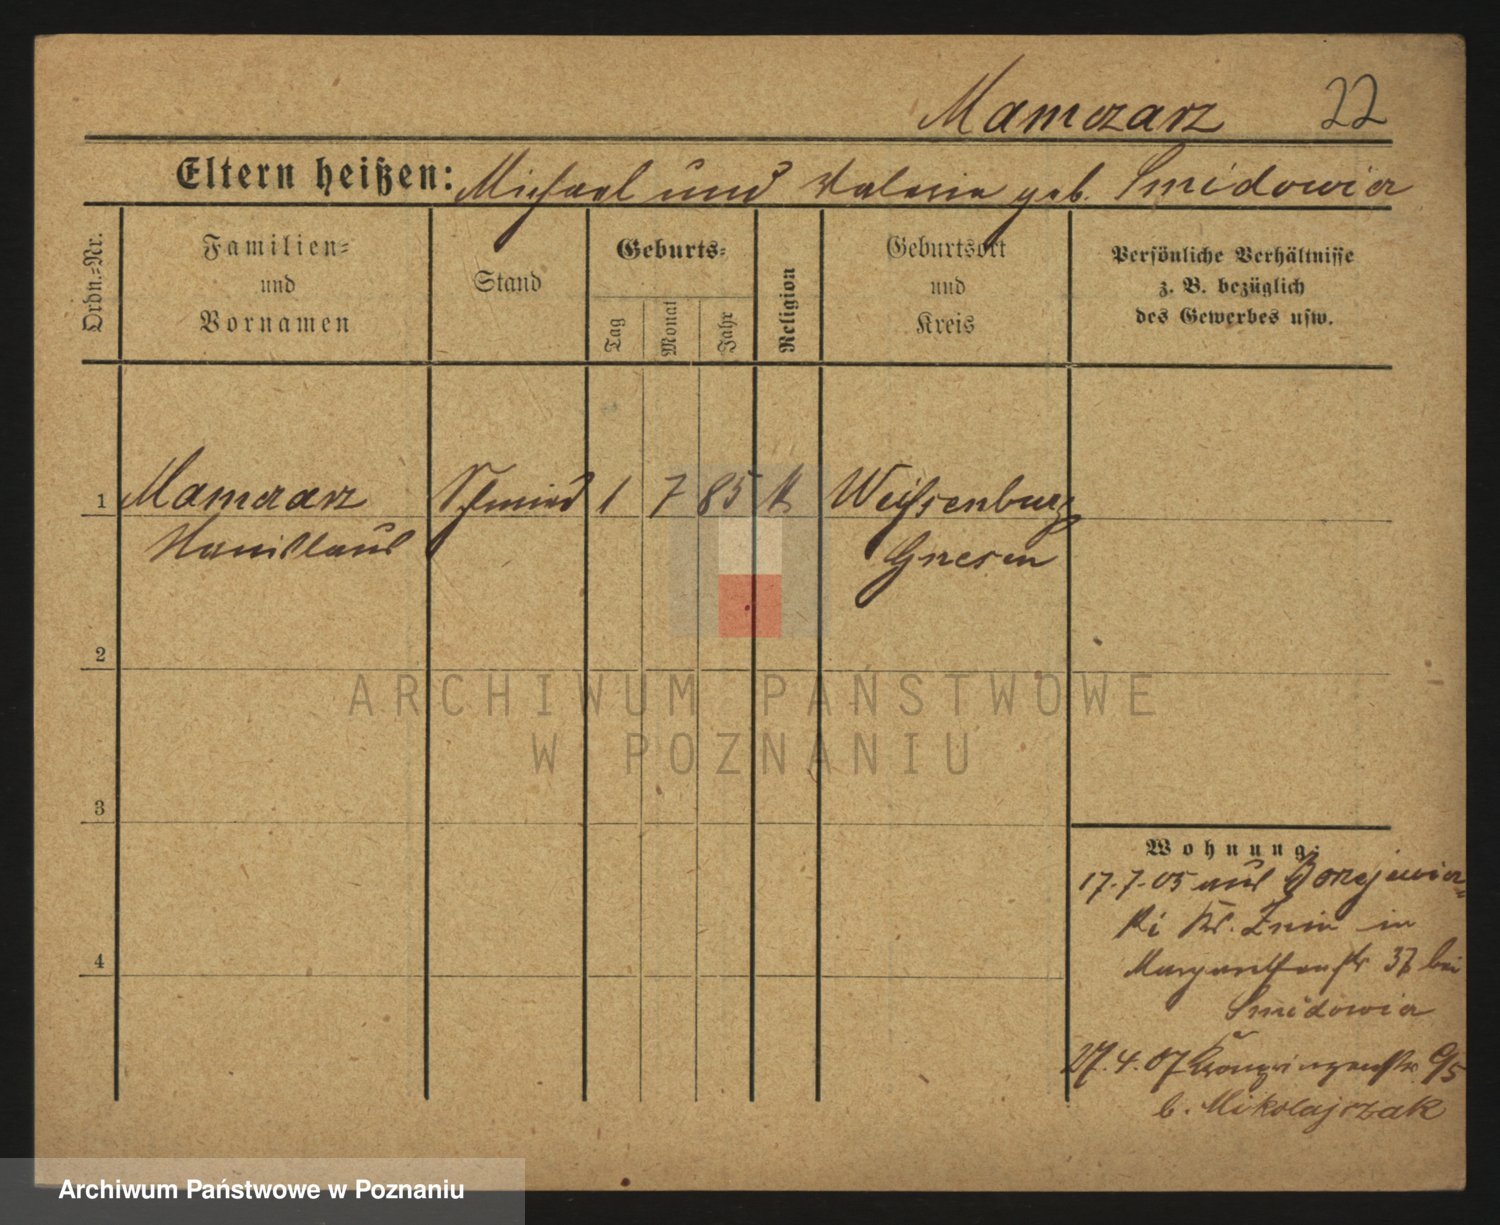 Mamczarz 22
Eltern heißen: Michael und Valeria geb. Smidowicz
Ordn.-Nr.
Familien-
und
Vornamen
Stand
Geburts-
Tag
Monat
Jahr
Religion
Geburtsort
und
Kreis
Persönliche Verhältnisse
z. B. bezüglich
des Gewerbes usw.
1 Mamczarz Schmied 1 7 85 K Weißenburg
Stanislaus Gnesen
2
3
4
Wohnung:
17.7.05 aus
Kr. Znin in
Margarethenstr 37 bei
Smidowicz
27.4.07 Kronprinzenstr.
b. Mikolajczak
ARCHIWUM PAŃSTWOWE
W POZNANIU
Archiwum Państwowe w Poznaniu